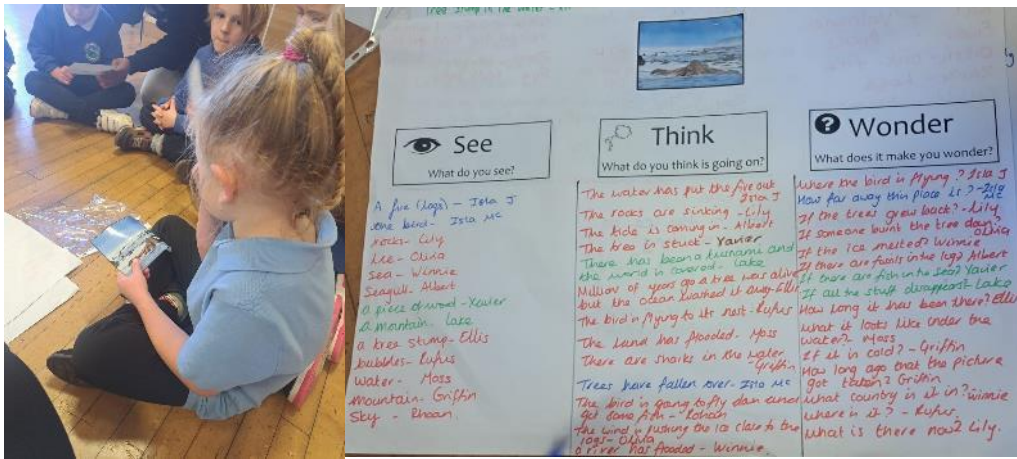 Tree stump in the water -
See
What do you see?
A fire (logs) - Isla J
one bird - Isla Mc
rocks - Lily
Ice - Olivia
Sea - Winnie
Seagull - Albert
a piece of wood - Xavier
a mountain - Lake
a tree stump - Ellis
bubbles - Rufus
Water - Moss
mountain - Griffin
Sky - Rhoan.
Think
What do you think is going on?
The water has put the fire out
Isla J
The rocks are sinking - Lily
The tide is coming in - Albert
The tree in stuck - Xavier
There has been a tsunami and
the world is covered - Lake
Million of years ago a tree was alive
but the ocean washed it away - Ellis
The bird in flying to its nest - Rufus
The land has flooded - Moss
There are sharks in the water
Griffin
Trees have fallen over - Isla Mc
The bird in going to fly down and
get some fish - Rohan
The wind in pushing the ice close to the
logs - Olivia
a river has flooded - Winnie
? Wonder
What does it make you wonder?
Where the bird in flying? Isla J
How far away this place is? - Isla
Mc
If the trees grew back? - Lily
If someone burnt the tree down?
Olivia
If the ice melted? Winnie
If there are fossils in the log? Albert
If there are fish in the sea? Xavier
If all the stuff disappears? Lake
How long it has been there? Ellis
what it looks like under the
water? Moss
If it in cold? - Griffin
How long ago that the picture
got taken? Griffin
what country in it in? Winnie
where in it? - Rufus.
What is there now? Lily.